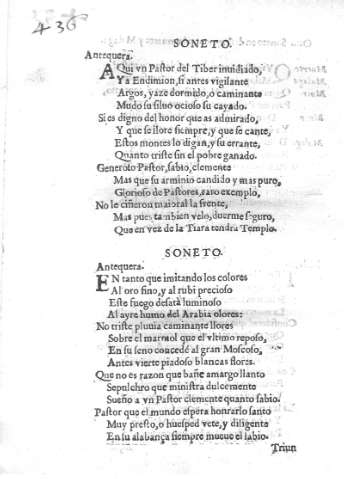 436
SONETO.
Antequera.
AQui vn Pastor del Tiber inuidiado,
Ya Endimion, si antes vigilante
Argos, yaze dormido, o caminante
Mudo su siluo ocioso su cayado.
Si es digno del honor que as admirado,
Y que se llore siempre, y que se cante,
Estos montes lo digan, y su errante,
Quanto triste sin el pobre ganado.
Generoso Pastor, sabio, clemente
Mas que su arminio candido y mas puro,
Glorioso de Pastores, raro exemplo,
No le ciñeron maioral la frente,
Mas pues tambien velo, duerme seguro,
Que en vez de la Tiara tendra Templo.
SONETO.
Antequera.
EN tanto que imitando los colores
Al oro fino, y al rubi precioso
Este fuego desata luminoso
Al ayre humo del Arabia olores:
No triste pluuia caminante llores
Sobre el marmol que el vltimo reposo,
En su seno concede al gran Moscoso,
Antes vierte piadoso blancas flores.
Que no es razon que bañe amargo llanto
Sepulchro que ministra dulcemente
Sueño a vn Pastor clemente quanto sabio.
Pastor que el mundo espera honrarlo santo
Muy presto, o huesped vete, y diligente
En su alabança siempre mueue el labio.
Triun